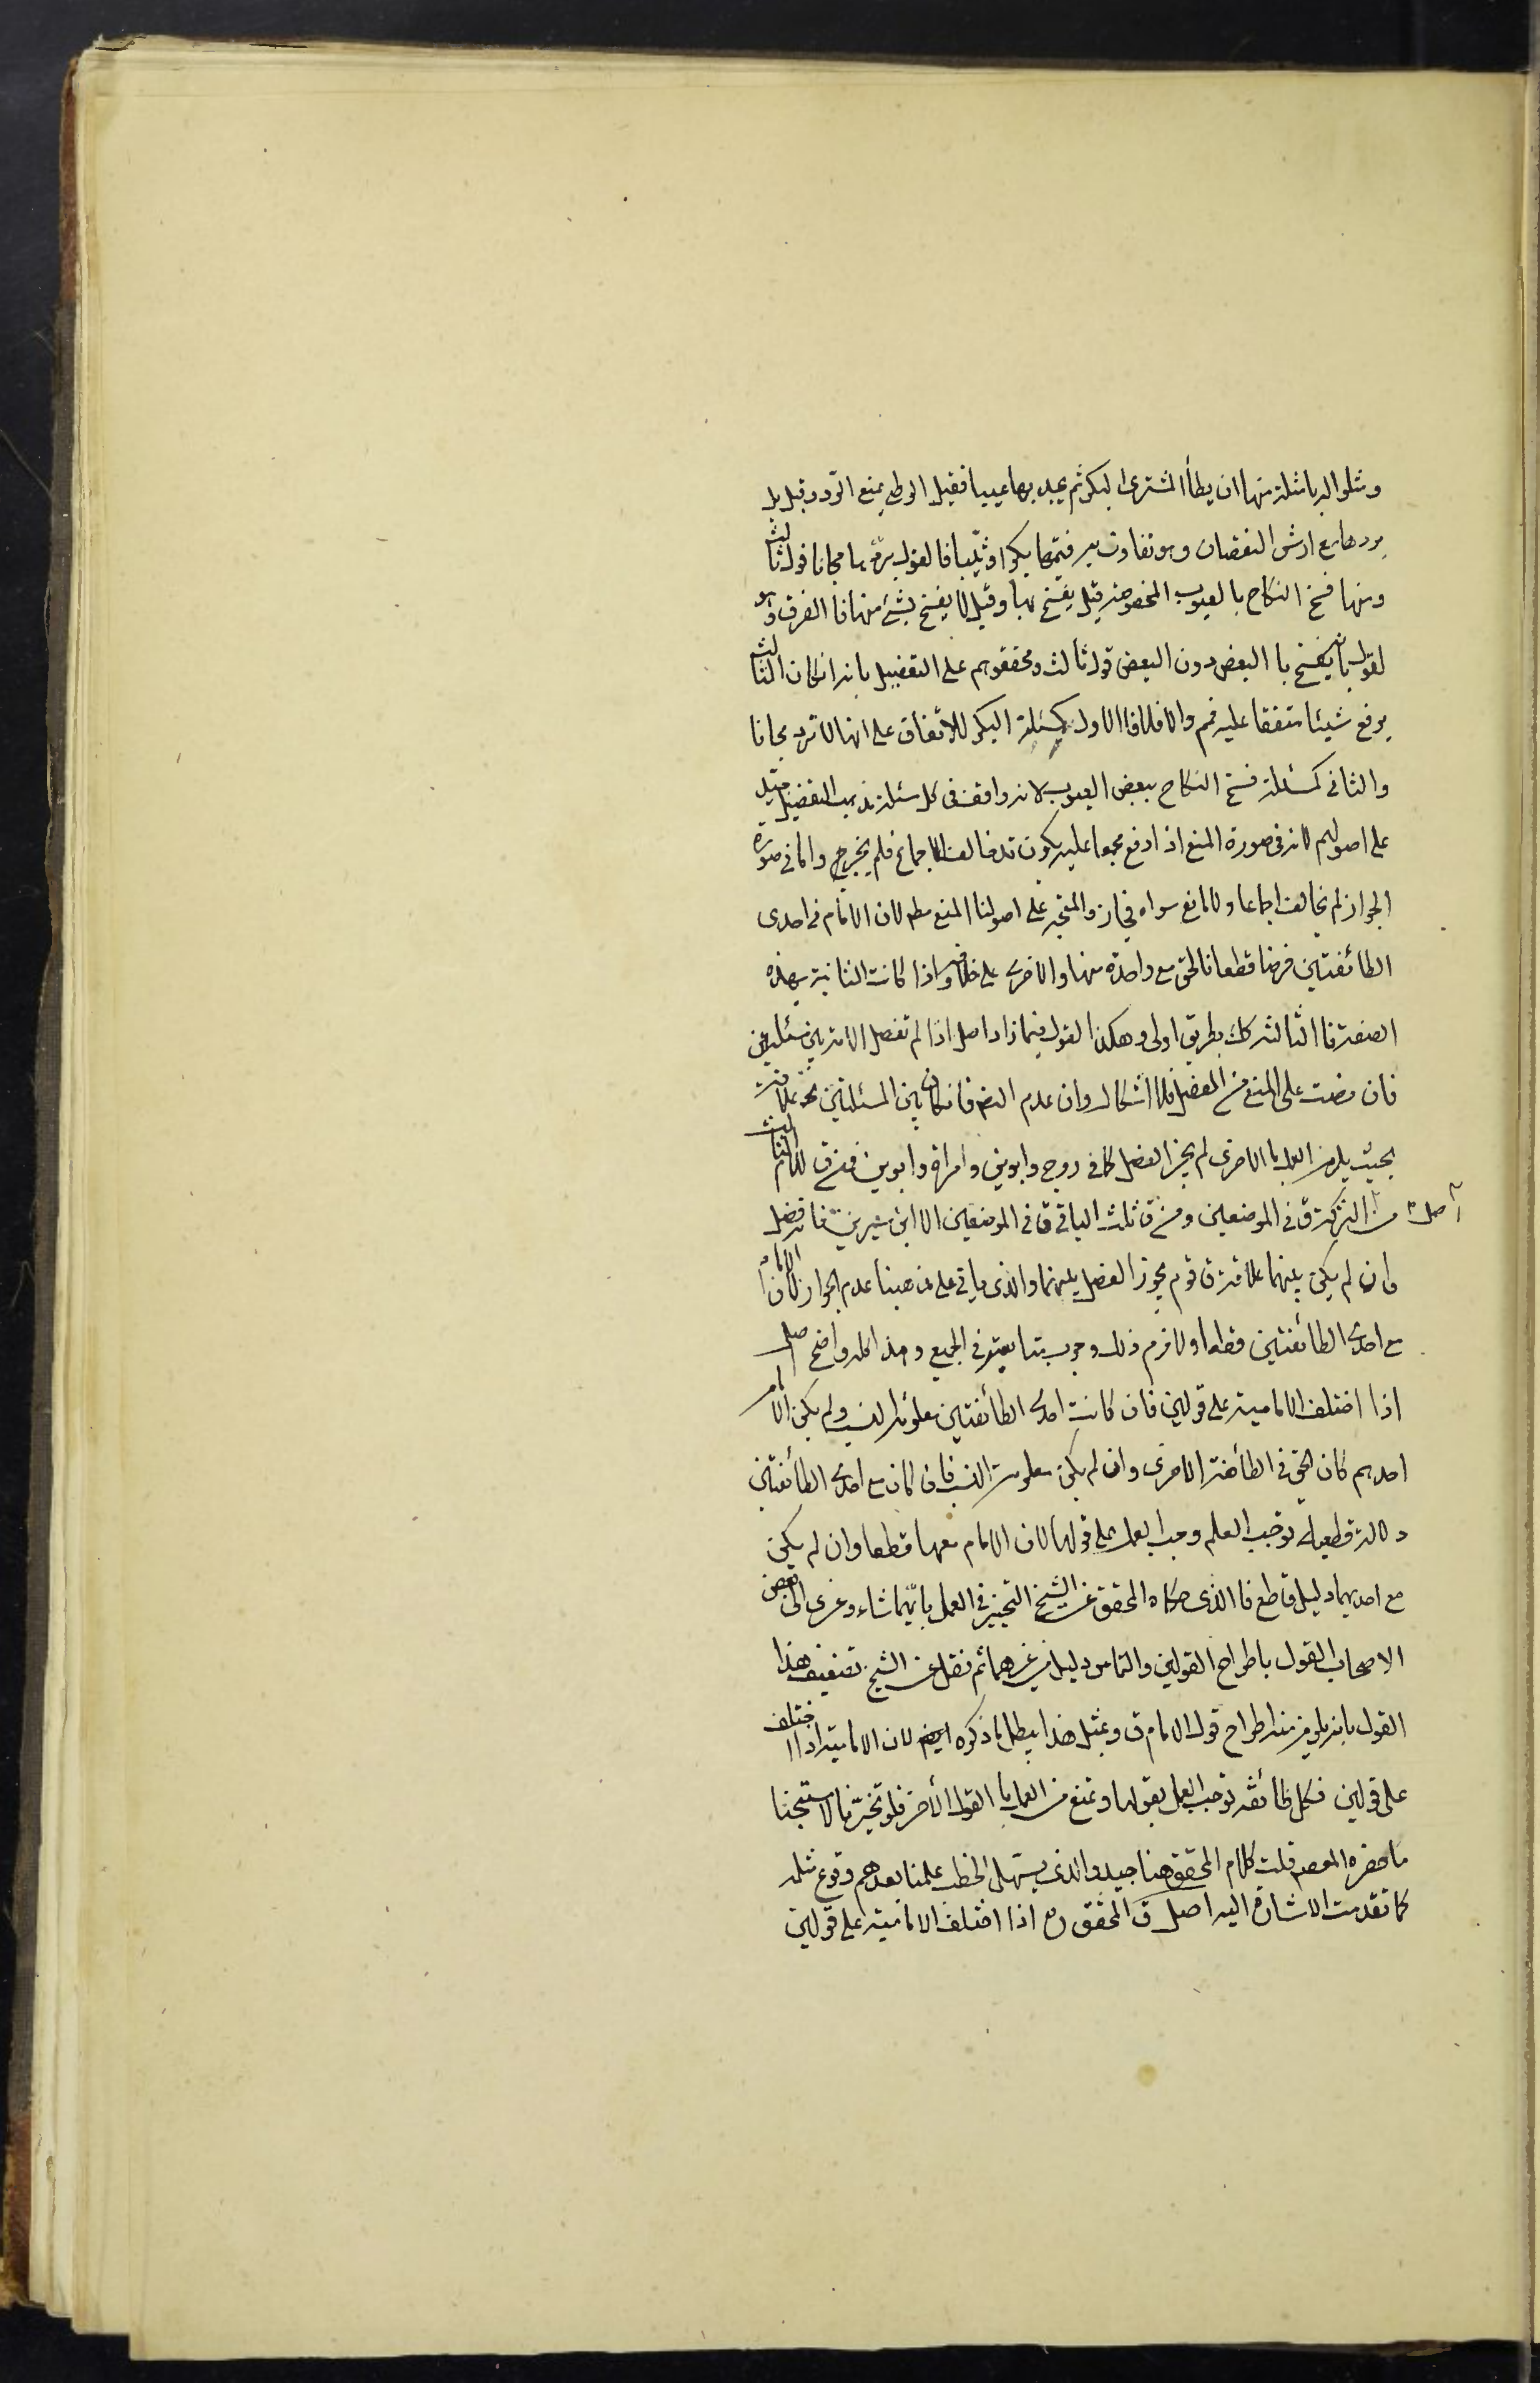 ومثلوا له بامثلة منها ان يطأ المشترى البكر ثم يجد بها عيبا فقيل الوطى يمنع الرد وقيل بل
يردها مع ارش النقصان وهو تفاوت بين قيمتها بكرا وثيبا فالقول بردها مجانا قول ثالث
ومنها فسخ النكاح بالعيوب المخصوصة قيل يفسخ بها وقيل لا يفسخ بشئ منها فالفرق وهو
القول بانه يفسخ با البعض دون البعض قول ثالث ومحققوهم على التفصيل بانه ان كان الثالث
يرفع شيئا متفقا عليه فمم والا فلا فالاول كمسئلة البكر للاتفاق على انها لا ترد مجانا
والثانى كمسئلة فسخ النكاح ببعض العيوب لانه وافق فى كل مسئلة مذهب التفضيل جيد
على اصولهم لانه فى صورة المنع اذا رفع مجمعا عليه يكون قد خالف الاجماع فلم يجز واما فى صورة
الجواز لم يخالف اجماعا ولا مانع سواه فجاز والمتجه على اصولنا المنع مطم لان الامام فى احدى
الطائفتين فرضا قطعا فالحق مع واحدة منها والاخرى على خلافه واذا كانت الثانية بهذه
الصفة فا الثالثة كك بطريق اولى وهكذا القول فيما زاد اصل اذا لم تفصل الامة بين مسئلتين
فان نصت على المنع من الفصل فلا اشكال وان عدم النص فان كان بين المسئلتين علاقة
بحيث يلزم العمل با الاخرى لم يجز الفصل كما فى زوج وابوين وامراة وابوين فمن ق للام الثلث
اصل التركة ق فى الموضعين ومن ق ثلث الباقى ق فى الموضعين الا ابن سيرين فانه فصل
وان لم يكن بينهما علاقة ق قوم يجوز الفصل بينهما والذى ياتى على مذهبنا عدم الجواز لان الامام
مع احدى الطائفتين قطعا ولازم ذلك وجوب متابعته فى الجميع وهذا كله واضح اصل
اذا اختلف الامامية على قولين فان كانت احدى الطائفتين معلومة النسب ولم يكن الامام
احدهم كان الحق فى الطائفة الاخرى وان لم يكن معلومة النسب فان كان مع احدى الطائفتين
دلالة قطعية توجب العلم وجب العمل على قولها لان الامام معها قطعا وان لم يكن
مع احديهما دليل قاطع فا الذى حكاه المحقق عن الشيخ التخيير فى العمل بايهما شاء وعزى الى بعض
الاصحاب القول باطراح القولين والتماس دليل من غيرهما ثم نقل عن الشيخ تضعيف هذا
القول بانه يلزم منه اطراح قول الامام ق وبمثل هذا يبطل ما ذكره ايضم لان الامامية اذا اختلف
على قولين فكل طائفة توجب العمل بقولها وتمنع من العمل با القول الاخر فلو تخيرنا لاستبحنا
ما حضره المعصم قلت كلام المحقق هنا جيد والذى يسهل الخطب علمنا بعدم وقوع مثله
كما تقدمت الاشارة اليه اصل ق المحقق ره اذا اختلف الامامية على قولين